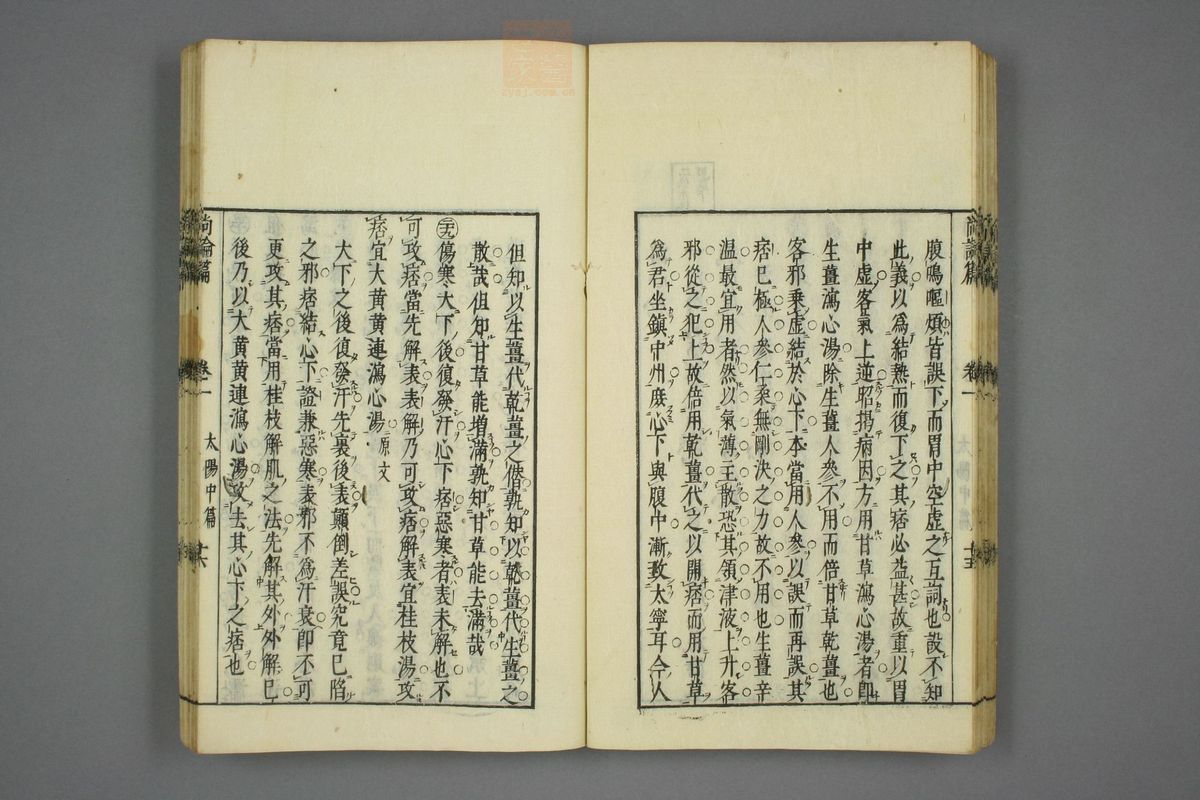 腹鳴嘔煩皆誤下而胃中空虛之互詞也設不知
此義以為結熱而復下之其痞必益甚故重以胃
中虛客氣上逆昭揭病因方用甘草瀉心湯者卽
生薑瀉心湯除生薑人參不用而倍甘草乾薑也
客邪乘虛結於心下本當用人參以誤而再誤其
痞已極人參仁柔無剛決之力故不用也生薑辛
温最宜用者然以氣薄主散恐其領津液上升客
邪從之犯上故倍用乾薑代之以開痞而用甘草
為君坐鎮中州庶心下與腹中漸致太寧耳今人
尚論篇 卷一 太陽中篇
但知以生薑代乾薑之僭孰知以乾薑代生薑之
散哉但知甘草能增滿孰知甘草能去滿哉
傷寒大下後復發汗心下痞惡寒者表未解也不
可攻痞當先解表表解乃可攻痞解表宜桂枝湯攻
痞宜大黃黃連瀉心湯 原文
大下之後復發汗先裏後表顚倒差誤究竟已陷
之邪痞結心下證兼惡寒表邪不為汗衰卽不可
更攻其痞當用桂枝解肌之法先解其外外解已
後乃以大黃黃連瀉心湯攻去其心下之痞也
尚論篇 卷一 太陽中篇
zysj.com.cn